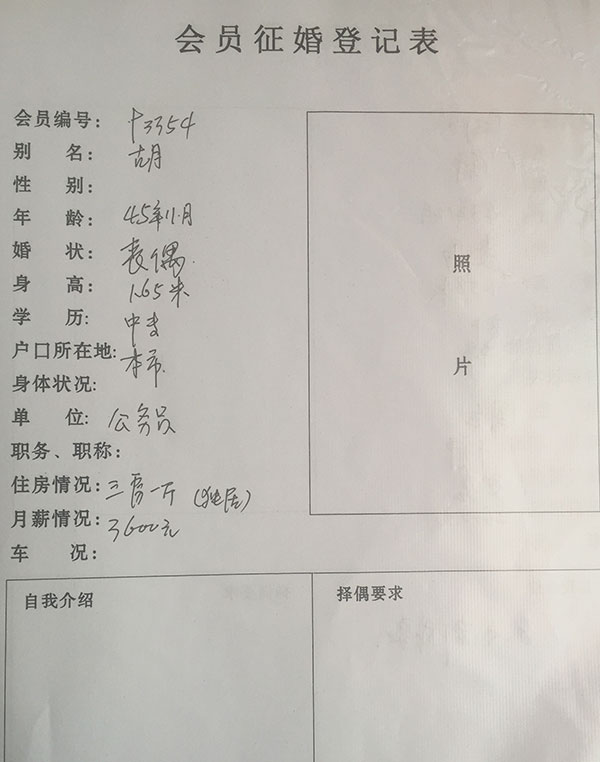 会员征婚登记表
会员编号： P3354
别 名： 胡
性 别：
年 龄： 45年11月
婚 状： 丧偶
身 高： 1.65米
学 历: 中专
户口所在地: 本市
身体状况:
单 位: 公务员
职务、职称：
住房情况: 三房一厅 (独居)
月薪情况: 3600元
车 况：
照
片
自我介绍
择偶要求